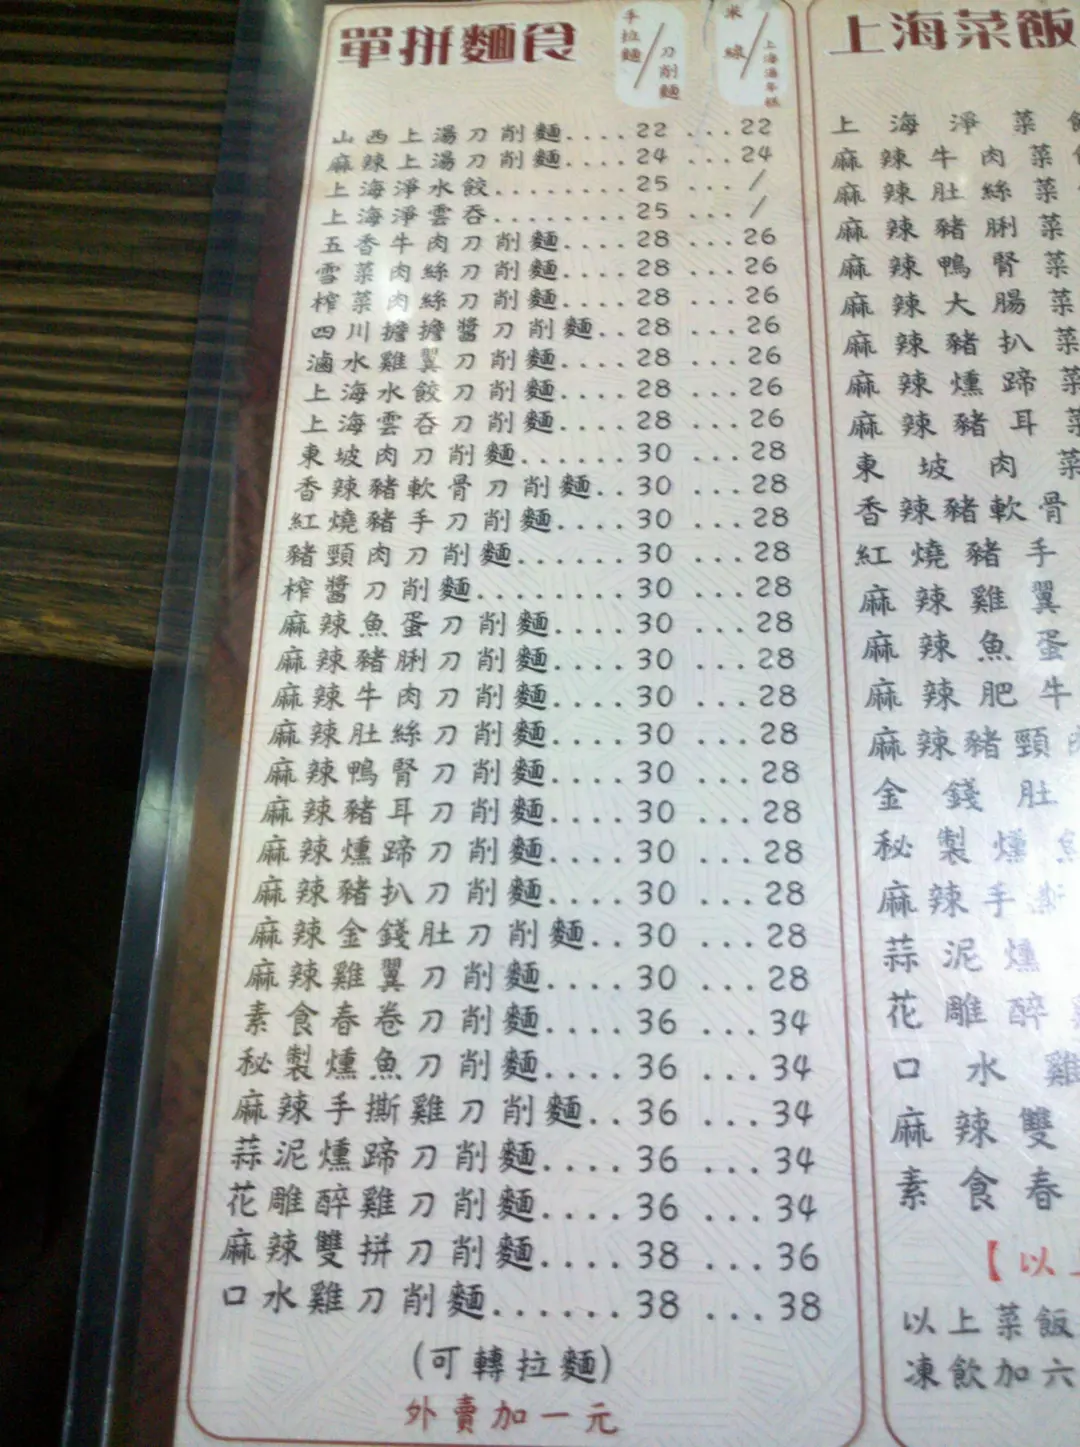 單拼麵食
手拉麵/刀削麵
米線/上海湯年糕
山西上湯刀削麵....22 ...22
麻辣上湯刀削麵....24 ...24
上海淨水餃........25 .../
上海淨雲吞........25 .../
五香牛肉刀削麵....28 ...26
雪菜肉絲刀削麵....28 ...26
榨菜肉絲刀削麵....28 ...26
四川擔擔醬刀削麵..28 ...26
滷水雞翼刀削麵....28 ...26
上海水餃刀削麵....28 ...26
上海雲吞刀削麵....28 ...26
東坡肉刀削麵......30 ...28
香辣豬軟骨刀削麵..30 ...28
紅燒豬手刀削麵....30 ...28
豬頸肉刀削麵......30 ...28
榨醬刀削麵........30 ...28
麻辣魚蛋刀削麵....30 ...28
麻辣豬脷刀削麵....30 ...28
麻辣牛肉刀削麵....30 ...28
麻辣肚絲刀削麵....30 ...28
麻辣鴨腎刀削麵....30 ...28
麻辣豬耳刀削麵....30 ...28
麻辣燻蹄刀削麵....30 ...28
麻辣豬扒刀削麵....30 ...28
麻辣金錢肚刀削麵..30 ...28
麻辣雞翼刀削麵....30 ...28
素食春卷刀削麵....36 ...34
秘製燻魚刀削麵....36 ...34
麻辣手撕雞刀削麵..36 ...34
蒜泥燻蹄刀削麵....36 ...34
花雕醉雞刀削麵....36 ...34
麻辣雙拼刀削麵....38 ...36
口水雞刀削麵......38 ...38
(可轉拉麵)
外賣加一元
上海菜飯
上海淨菜
麻辣牛肉菜
麻辣肚絲菜
麻辣豬脷菜
麻辣鴨腎菜
麻辣大腸菜
麻辣豬扒菜
麻辣燻蹄菜
麻辣豬耳菜
東坡肉菜
香辣豬軟骨
紅燒豬手
麻辣雞翼
麻辣魚蛋
麻辣肥牛
麻辣豬頸肉
金錢肚
秘製燻魚
麻辣手撕
蒜泥燻
花雕醉
口水雞
麻辣雙
素食春
【以上
以上菜飯
凍飲加六